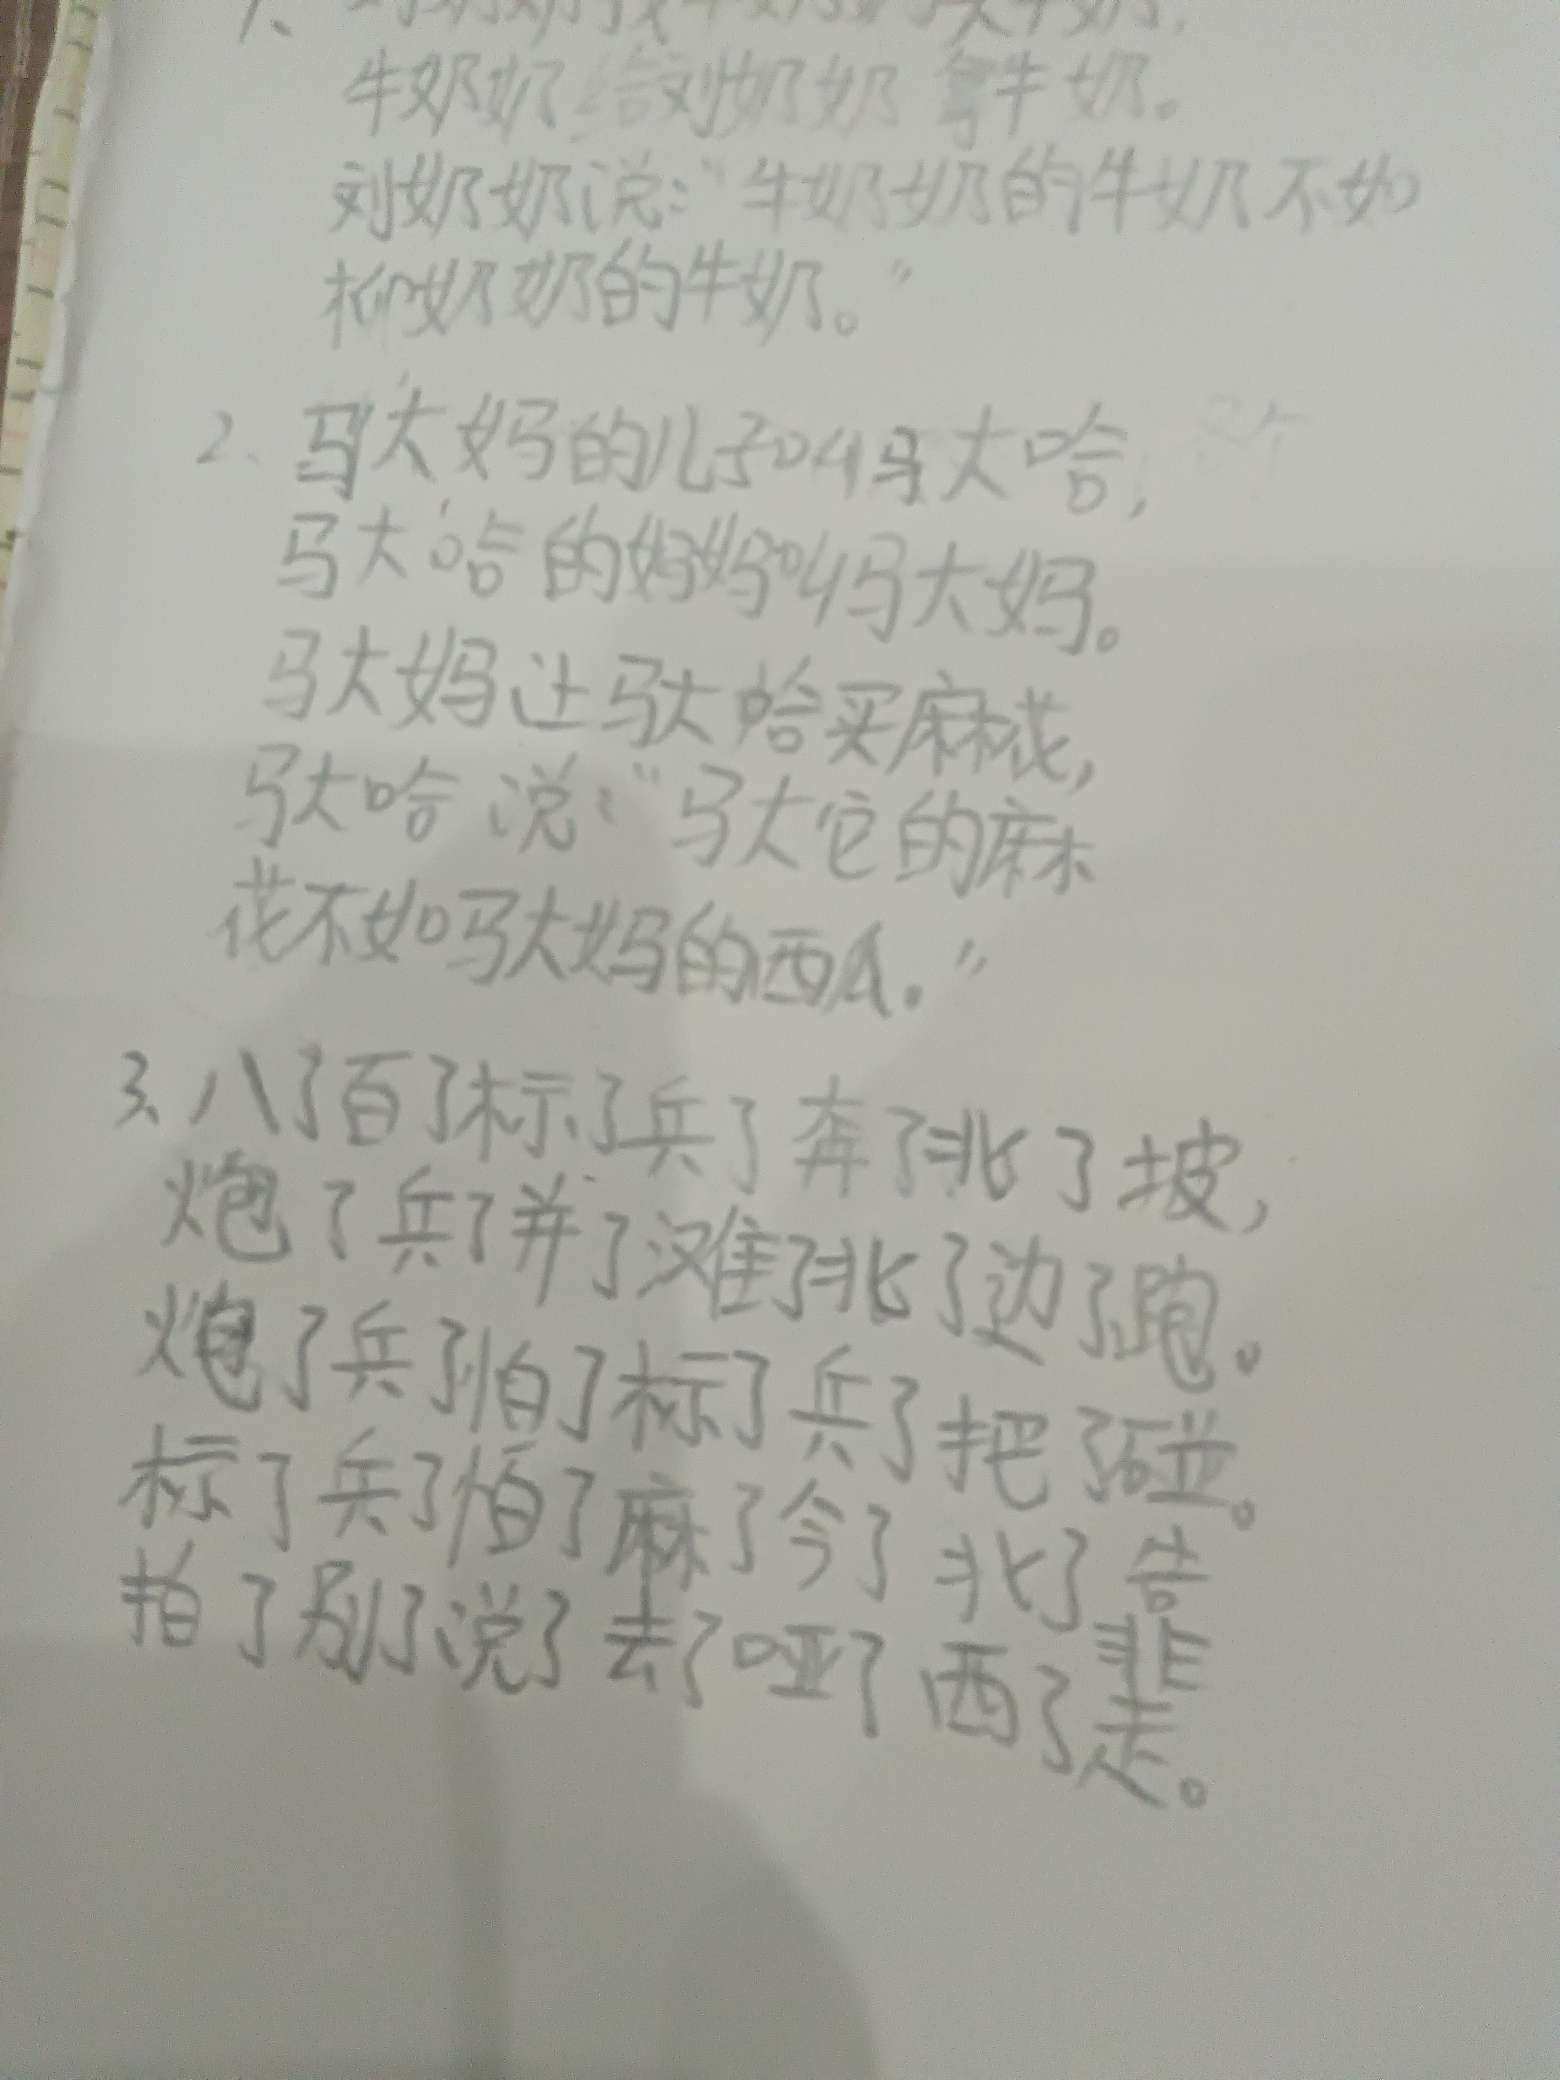 1、刘奶奶找牛奶奶买牛奶,
牛奶奶给刘奶奶拿牛奶。
刘奶奶说:“牛奶奶的牛奶不如
柳奶奶的牛奶。”
2、马大妈的儿子叫马大哈,
马大哈的妈妈叫马大妈。
马大妈让马大哈买麻花,
马大哈说:“马大它的麻
花不如马大妈的西瓜。”
3、八了百了标了兵了奔了北了坡,
炮了兵了并了滩了北了边了跑。
炮了兵了怕了标了兵了把了碰。
标了兵了怕了麻了今了北了告
拍了别了说了去了哑了西了走。